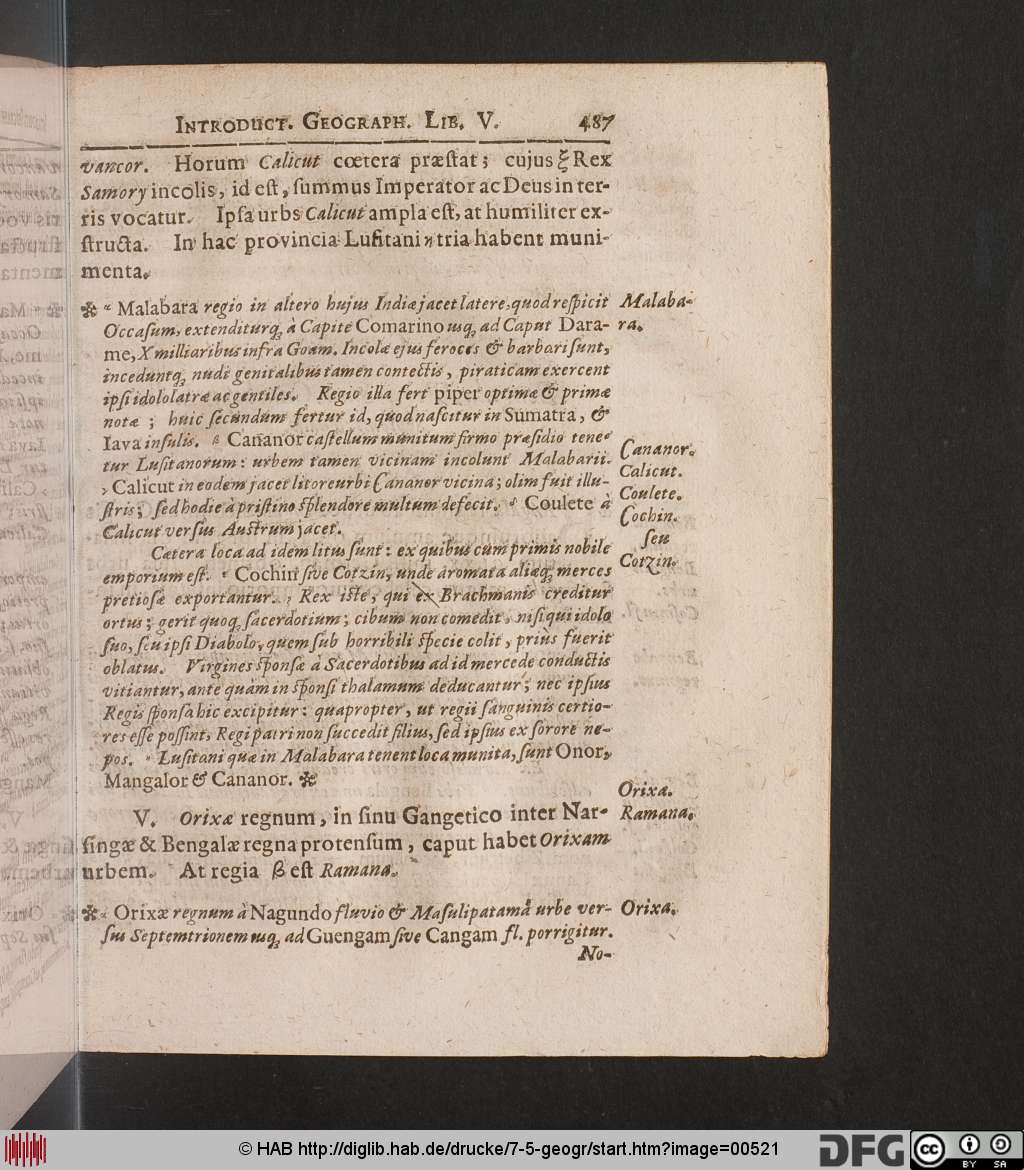 INTRODUCT. GEOGRAPH. LIB. V. 487
vancor. Horum Calicut cœtera præstat; cujus ξ Rex
Samory incolis, id est, summus Imperator ac Deus in ter-
ris vocatur. Ipsa urbs Calicut ampla est, at humiliter ex-
structa. In hac provincia Lusitani η tria habent muni-
menta.
✻ α Malabara regio in altero hujus Indiæ jacet latere, quod respicit
Occasum, extenditurq; à Capite Comarino usq; ad Caput Dara-
me, X milliaribus infra Goam. Incolæ ejus feroces & barbari sunt,
inceduntq; nudi genitalibus tamen contectis, piraticam exercent
ipsi idololatræ ac gentiles. Regio illa fert piper optimæ & primæ
notæ; huic secundum fertur id, quod nascitur in Sumatra, &
Iava insulis. β Cananor castellum munitum firmo præsidio tene-
tur Lusitanorum: urbem tamen vicinam incolunt Malabarii.
γ Calicut in eodem jacet litore urbi Cananor vicina; olim fuit illu-
stris; sed hodie à pristino splendore multum defecit. δ Coulete à
Calicut versus Austrum jacet.
Cætera loca ad idem litus sunt: ex quibus cum primis nobile
emporium est. ε Cochin sive Cotzin, unde aromata aliæq; merces
pretiosæ exportantur. Rex iste, qui ex Brachmanis creditur
ortus; gerit quoq; sacerdotium; cibum non comedit, nisi qui idolo
suo, seu ipsi Diabolo, quem sub horribili specie colit, priùs fuerit
oblatus. Virgines sponsæ à Sacerdotibus ad id mercede conductis
vitiantur, ante quam in sponsi thalamum deducantur; nec ipsius
Regis sponsa hic excipitur: quapropter, ut regii sanguinis certio-
res esse possint, Regi patri non succedit filius, sed ipsius ex sorore ne-
pos. η Lusitani quæ in Malabara tenent loca munita, sunt Onor,
Mangalor & Cananor. ✻
V. Orixæ regnum, in sinu Gangetico inter Nar-
singæ & Bengalæ regna protensum, caput habet Orixam
urbem. At regia β est Ramana.
✻ α Orixæ regnum à Nagundo fluvio & Masulipatamâ urbe ver-
sus Septemtrionem usq; ad Guengam sive Cangam fl. porrigitur.
No-
Malaba-
ra.
Cananor.
Calicut.
Coulete.
Cochin.
seu
Cotzin.
Orixa.
Ramana.
Orixa.
© HAB http://diglib.hab.de/drucke/7-5-geogr/start.htm?image=00521
DFG
cc
BY SA